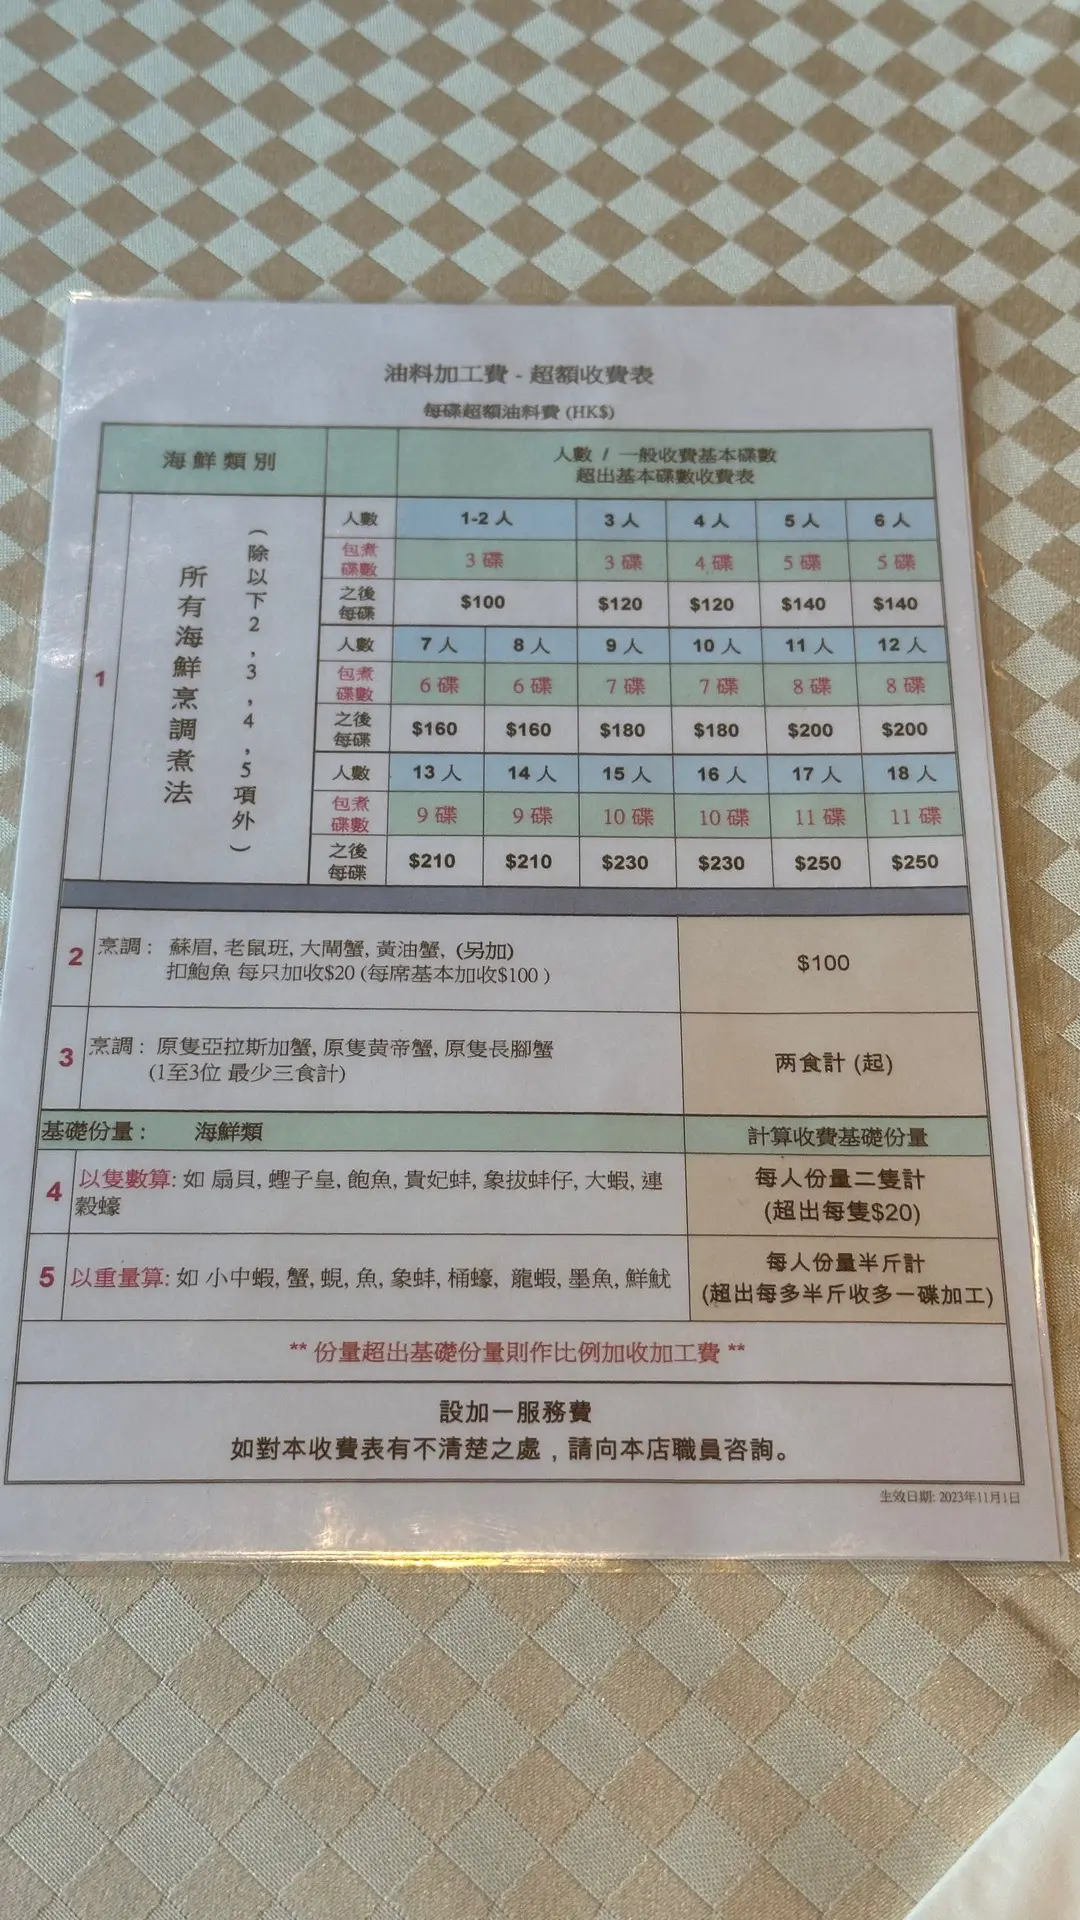 油料加工費 - 超額收費表
每碟超額油料費 (HK$)
海鮮類別
人數 / 一般收費基本碟數
超出基本碟數收費表
1
所有海鮮烹調煮法
(除以下2,3,4,5項外)
人數 1-2 人 3 人 4 人 5 人 6 人
包煮碟數 3 碟 3 碟 4 碟 5 碟 5 碟
之後每碟 $100 $120 $120 $140 $140
人數 7 人 8 人 9 人 10 人 11 人 12 人
包煮碟數 6 碟 6 碟 7 碟 7 碟 8 碟 8 碟
之後每碟 $160 $160 $180 $180 $200 $200
人數 13 人 14 人 15 人 16 人 17 人 18 人
包煮碟數 9 碟 9 碟 10 碟 10 碟 11 碟 11 碟
之後每碟 $210 $210 $230 $230 $250 $250
2 烹調： 蘇眉, 老鼠班, 大閘蟹, 黃油蟹, (另加)
扣鮑魚 每只加收$20 (每席基本加收$100 )
$100
3 烹調： 原隻亞拉斯加蟹, 原隻黃帝蟹, 原隻長腳蟹
(1至3位 最少三食計)
两食計 (起)
基礎份量： 海鮮類 計算收費基礎份量
4 以隻數算: 如 扇貝, 蟶子皇, 鮑魚, 貴妃蚌, 象拔蚌仔, 大蝦, 連
穀蠔
每人份量二隻計
(超出每隻$20)
5 以重量算: 如 小中蝦, 蟹, 蜆, 魚, 象蚌, 桶蠔, 龍蝦, 墨魚, 鮮魷
每人份量半斤計
(超出每多半斤收多一碟加工)
** 份量超出基礎份量則作比例加收加工費 **
設加一服務費
如對本收費表有不清楚之處，請向本店職員咨詢。
生效日期: 2023年11月1日